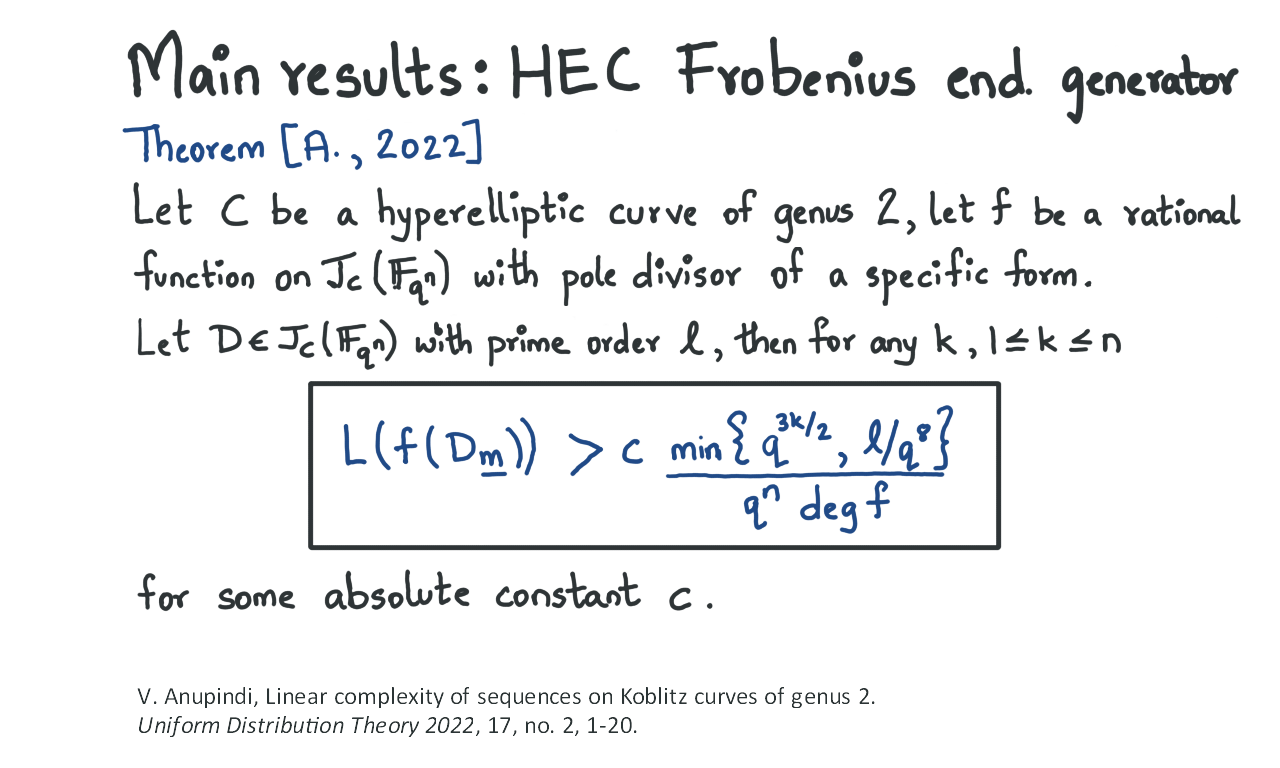 Main results: HEC Frobenius end. generator
Theorem [A., 2022]
Let C be a hyperelliptic curve of genus 2, let f be a rational
function on J_C(𝔽_{q^n}) with pole divisor of a specific form.
Let D ∈ J_C(𝔽_{q^n}) with prime order ℓ, then for any k, 1 ≤ k ≤ n
L(f(D_m)) > c min{q^{3k/2}, ℓ/q^8} / q^n deg f
for some absolute constant c.
V. Anupindi, Linear complexity of sequences on Koblitz curves of genus 2.
Uniform Distribution Theory 2022, 17, no. 2, 1-20.